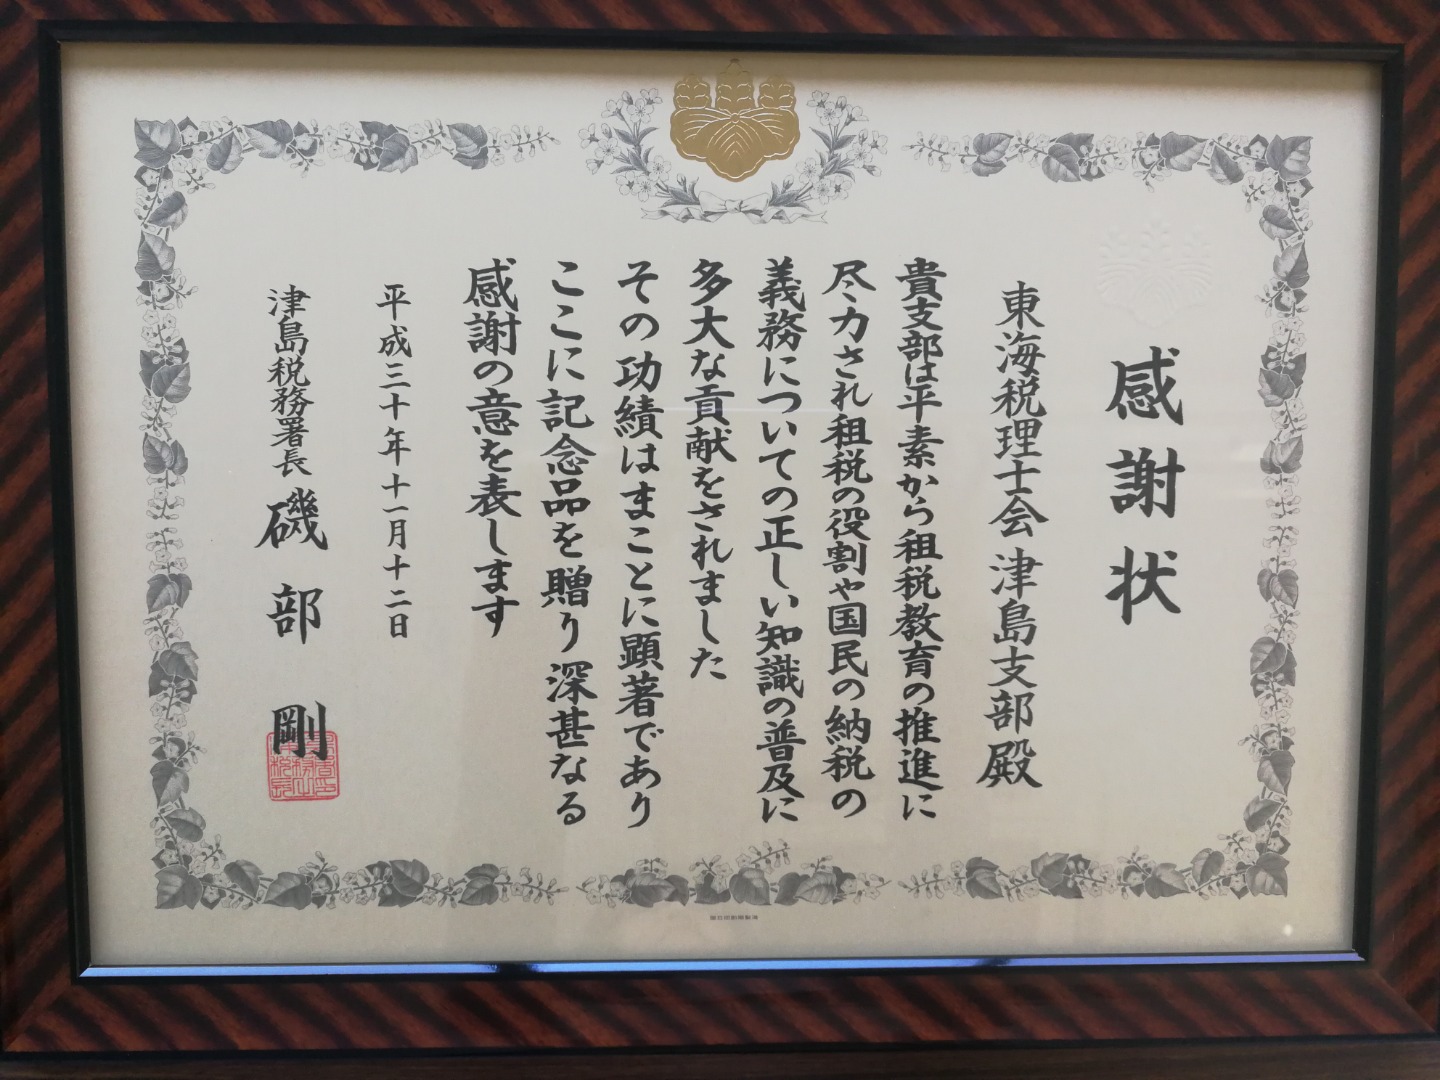 感謝状
東海税理士会津島支部殿
貴支部は平素から租税教育の推進に
尽力され租税の役割や国民の納税の
義務についての正しい知識の普及に
多大な貢献をされました
その功績はまことに顕著であり
ここに記念品を贈り深甚なる
感謝の意を表します
平成三十年十一月十二日
津島税務署長 磯部剛